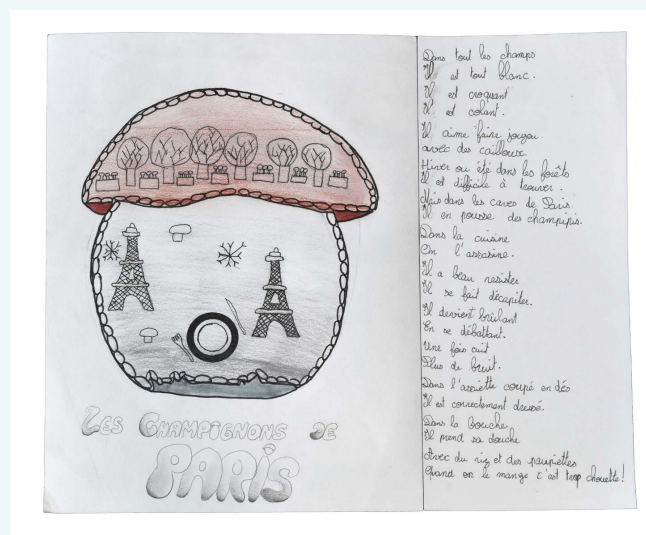 LES CHAMPIGNONS DE
PARIS
Dans tout les champs
Il est tout blanc.
Il est croquant
Il est colant.
Il aime faire joujou
avec des cailloux.
Hiver ou été dans les forêts
Il est difficile à trouver.
Mais dans les caves de Paris
Il en pousse des champipis.
Dans la cuisine
On l'assasine.
Il a beau resister
Il se fait décapiter.
Il devient brûlant
En se débattant.
Une fois cuit
Plus de bruit.
Dans l'assiette coupé en dés
Il est correctement dressé.
Dans la Bouche
Il prend sa douche
Avec du riz et des paupiettes
Quand on le mange c'est trop chouette!